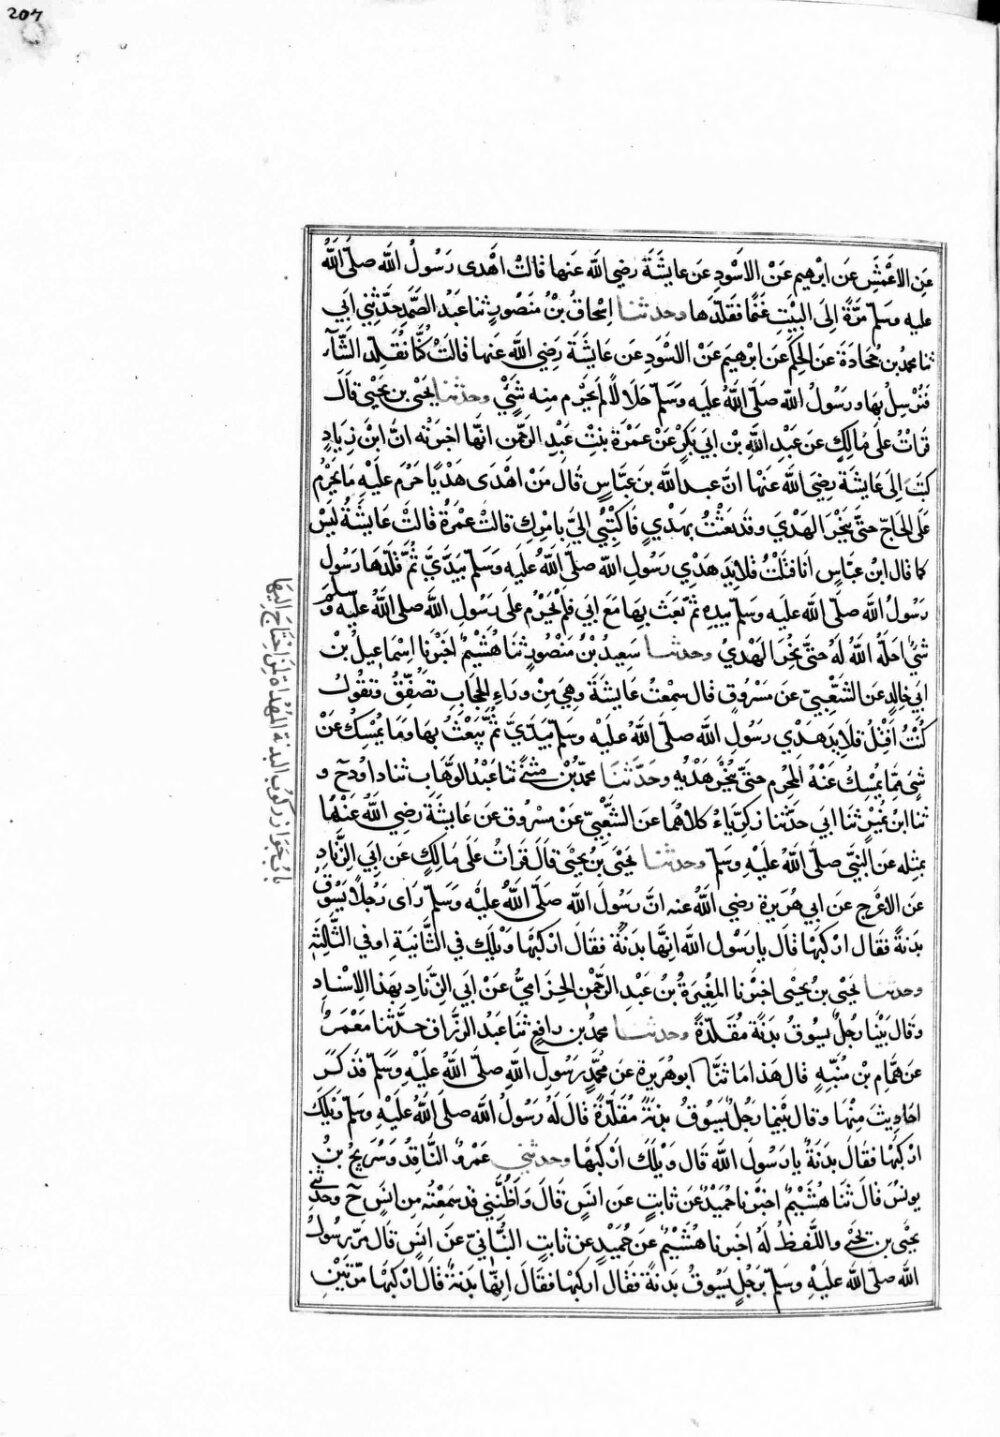 207
عن الاعمش عن ابرهيم عن الاسود عن عايشة رضي الله عنها قالت اهدى رسول الله صلى الله
عليه وسلم مرة الى البيت غنما فقلدها وحدثنا اسحاق بن منصور ثنا عبد الصمد حدثني ابي
ثنا محمد بن جحادة عن الحكم عن ابرهيم عن الاسود عن عايشة رضي الله عنها قالت كنا نقلد الشآء
فنرسل بها ورسول الله صلى الله عليه وسلم حلالا لم يحرم منه شئ وحدثنا يحيى بن يحيى قال
قرات على مالك عن عبد الله بن ابي بكر عن عمرة بنت عبد الرحمن انها اخبرته ان ابن زياد
كتب الى عايشة رضي الله عنها ان عبد الله بن عباس قال من اهدى هديا حرم عليه ما يحرم
على الحاج حتى ينحر الهدي وقد بعثت بهدي فاكتبي الي بامرك قالت عمرة قالت عايشة ليس
كما قال ابن عباس انا فتلت قلايد هدي رسول الله صلى الله عليه وسلم بيدي ثم قلدها رسول
رسول الله صلى الله عليه وسلم بيده ثم بعث بها مع ابي فلم يحرم على رسول الله صلى الله عليه وسلم
شئ احله الله له حتى نحر الهدي وحدثنا سعيد بن منصور ثنا هشيم اخبرنا اسماعيل بن
ابي خالد عن الشعبي عن مسروق قال سمعت عايشة وهي من وراء الحجاب تصفق وتقول
كنت افتل قلايد هدي رسول الله صلى الله عليه وسلم بيدي ثم يبعث بها وما يمسك عن
شئ مما يمسك عنه المحرم حتى ينحر هديه وحدثنا محمد بن مثنى ثنا عبد الوهاب ثنا داود ح و
ثنا ابن نمير ثنا ابي حدثنا زكرياء كلاهما عن الشعبي عن مسروق عن عايشة رضي الله عنها
بمثله عن النبي صلى الله عليه وسلم وحدثنا يحيى بن يحيى قال قرات على مالك عن ابي الزناد
عن الاعرج عن ابي هريرة رضي الله عنه ان رسول الله صلى الله عليه وسلم راى رجلا يسوق
بدنة فقال اركبها قال يا رسول الله انها بدنة فقال اركبها ويلك في الثانية او في الثالثة
وحدثنا يحيى بن يحيى اخبرنا المغيرة بن عبد الرحمن الحزامي عن ابي الزناد بهذا الاسناد
وقال بينا رجل يسوق بدنة مقلدة وحدثنا محمد بن رافع ثنا عبد الرزاق حدثنا معمر
عن همام بن منبه قال هذا ما ثنا ابو هريرة عن محمد رسول الله صلى الله عليه وسلم فذكر
احاديث منها وقال بينما رجل يسوق بدنة مقلدة قال له رسول الله صلى الله عليه وسلم ويلك
اركبها فقال بدنة يا رسول الله قال ويلك اركبها وحدثني عمرو الناقد وسريج بن
يونس قال ثنا هشيم اخبرنا حميد عن ثابت عن انس قال واظنني قد سمعته من انس ح وحدثني
يحيى بن يحيى واللفظ له اخبرنا هشيم عن حميد عن ثابت البناني عن انس قال مر رسول
الله صلى الله عليه وسلم برجل يسوق بدنة فقال اركبها فقال انها بدنة قال اركبها مرتين
باب جواز ركوب البدنة المهداة لمن احتاج اليها